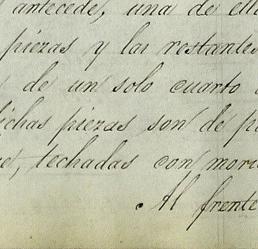 antecede, una de ell
piezas y las restantes
de un solo cuarto
ichas piezas son de pa
techadas con mori
Al frente